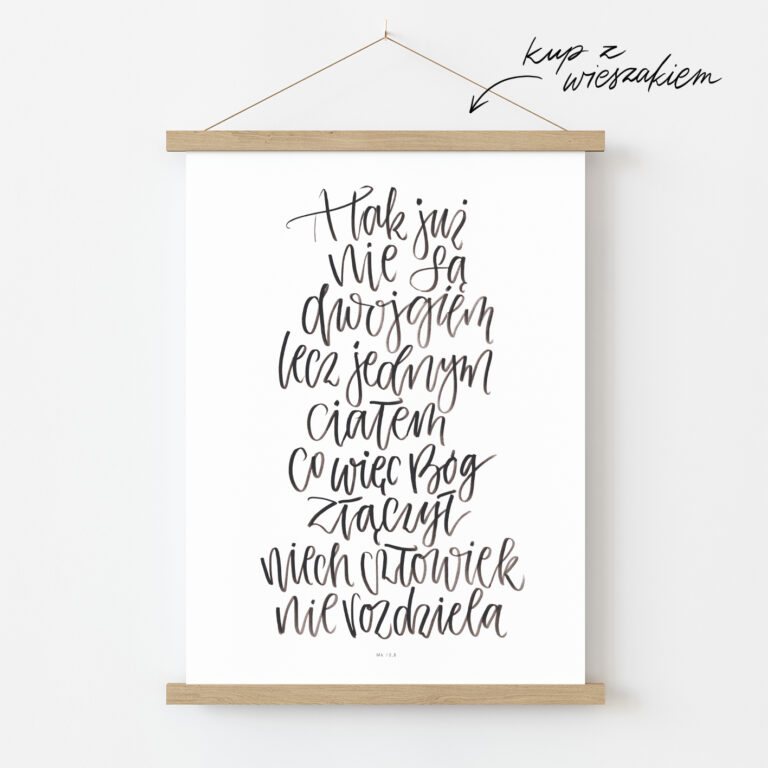 kup z
wieszakiem
A tak już
nie są
dwojgiem
lecz jednym
ciałem
co więc Bóg
złączył
niech człowiek
nie rozdziela
Mk 10,8